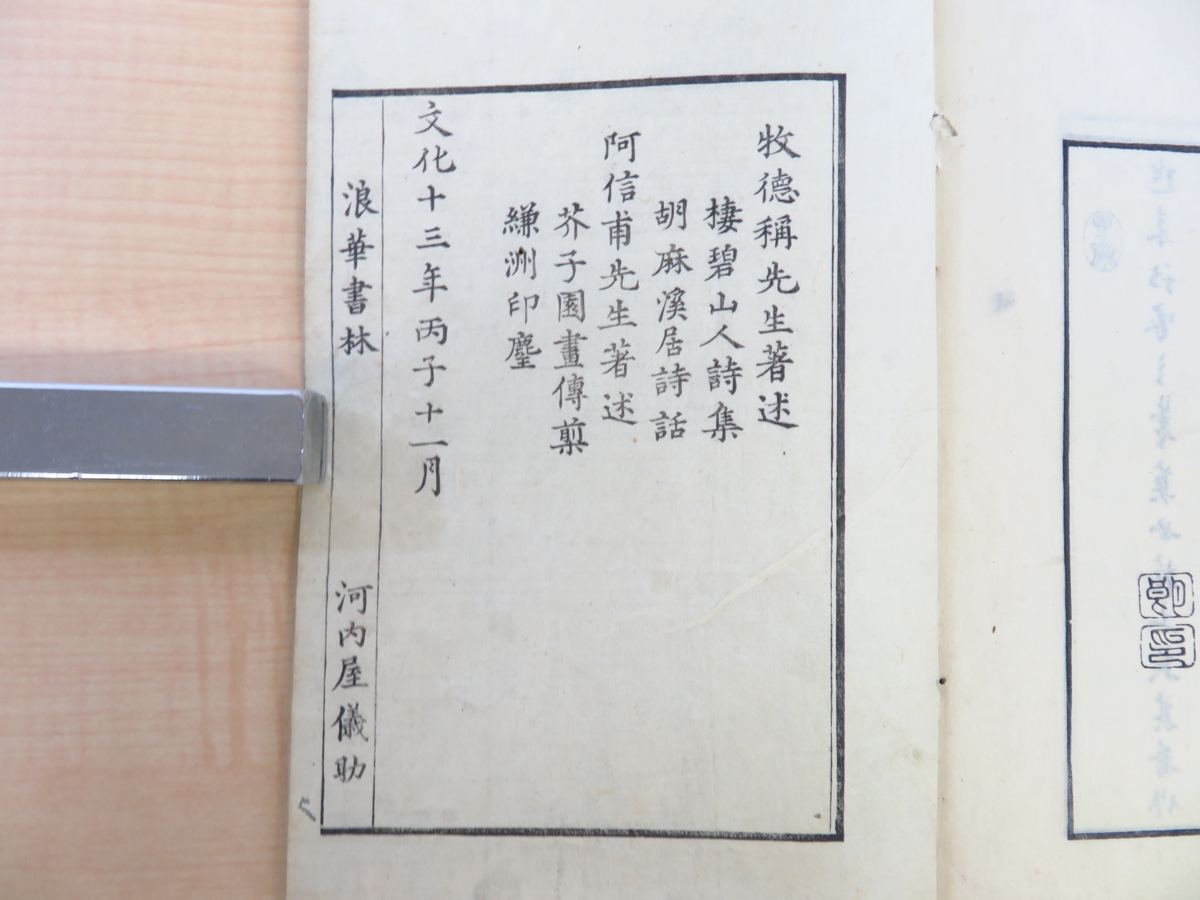 牧德稱先生著述
棲碧山人詩集
胡麻溪居詩話
阿信甫先生著述
芥子園畫傳翼
縑洲印麈
文化十三年丙子十一月
浪華書林 河内屋儀助